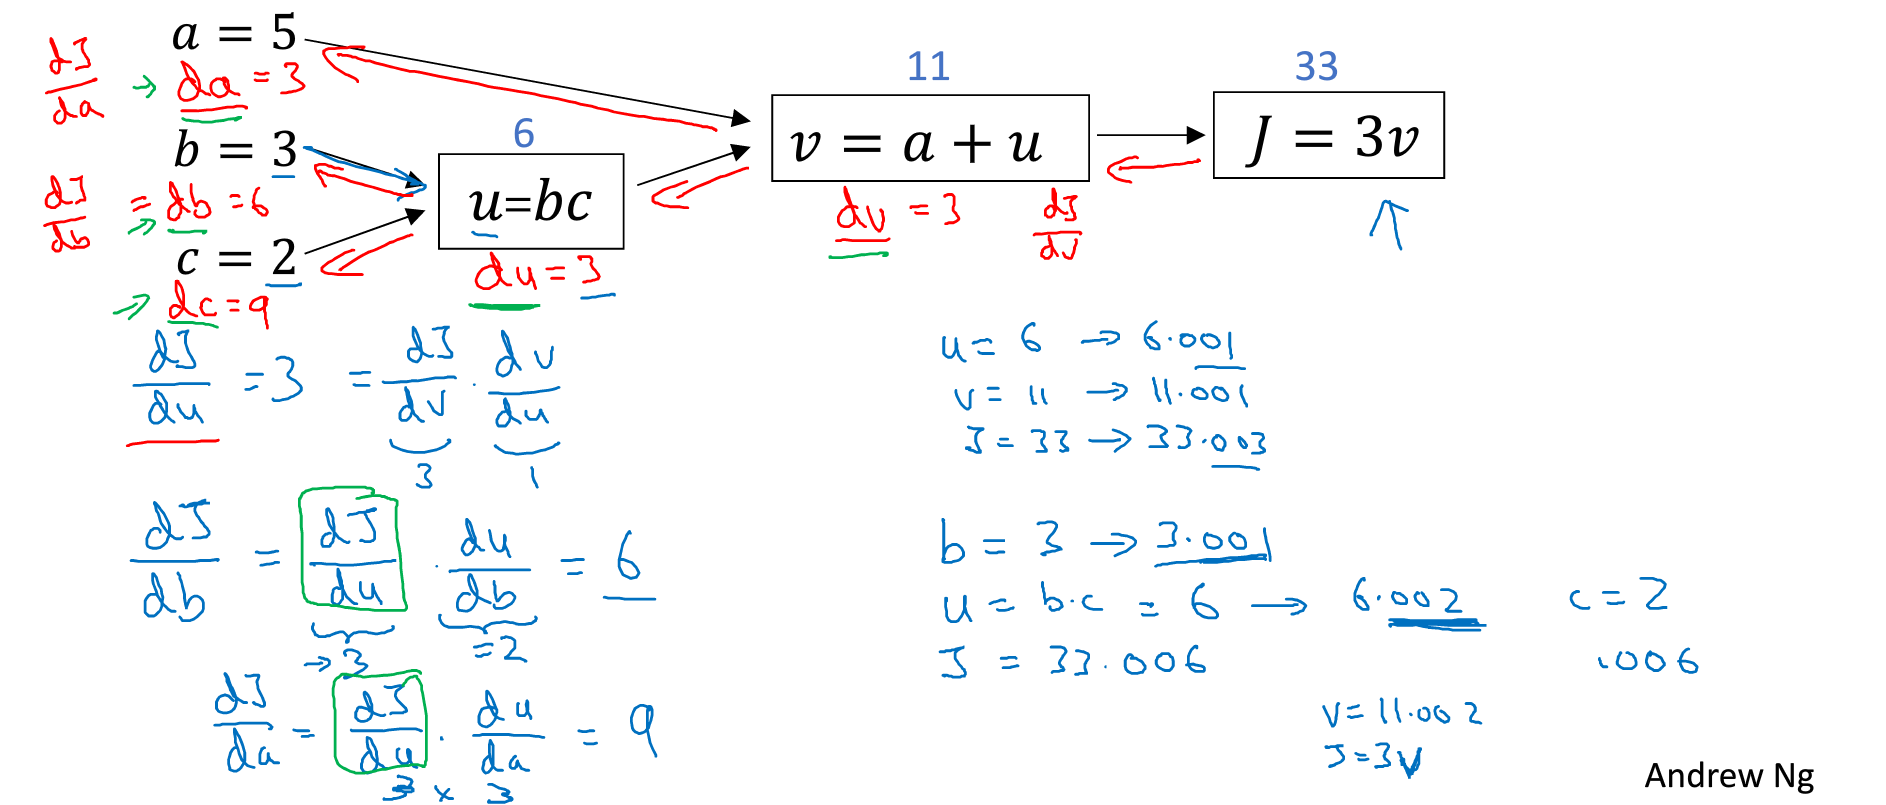 a = 5
11
33
dJ/da → da = 3
b = 3
6
v = a + u
J = 3v
dJ/db = → db = 6
u=bc
dv = 3
dJ/dv
c = 2
du = 3
→ dc = 9
dJ/du = 3 = dJ/dv · dv/du
3 1
dJ/db = dJ/du · du/db = 6
→ 3 = 2
dJ/da = dJ/du · du/da = 9
3 × 3
u = 6 → 6.001
v = 11 → 11.001
J = 33 → 33.003
b = 3 → 3.001
u = b·c = 6 → 6.002 c = 2
J = 33.006 .006
v = 11.002
J = 3v
Andrew Ng